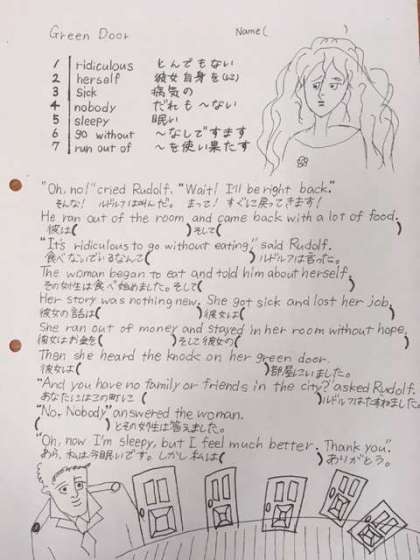 Green Door
Name( )
1 ridiculous とんでもない
2 herself 彼女自身を(に)
3 sick 病気の
4 nobody だれも〜ない
5 sleepy 眠い
6 go without 〜なしですます
7 run out of 〜を使い果たす
"Oh, no!" cried Rudolf. "Wait! I'll be right back."
そんな! ルドルフは叫んだ。 まって! すぐに戻ってきます!
He ran out of the room and came back with a lot of food.
彼は( )そして( )
"It's ridiculous to go without eating," said Rudolf.
食べないでいるなんて( )ルドルフは言った。
The woman began to eat and told him about herself.
その女性は食べ始めました。そして( )
Her story was nothing new. She got sick and lost her job.
彼女の話は( )彼女は( )
She ran out of money and stayed in her room without hope.
彼女はお金を( )そして彼女の( )
Then she heard the knock on her green door.
彼女は( )部屋にいました。
"And you have no family or friends in the city?" asked Rudolf.
あなたにはこの町に( )ルドルフはたずねました。
"No. Nobody" answered the woman.
( )とその女性は答えました。
"Oh, now I'm sleepy, but I feel much better. Thank you."
あら、私は今眠いです。しかし私は( )ありがとう。